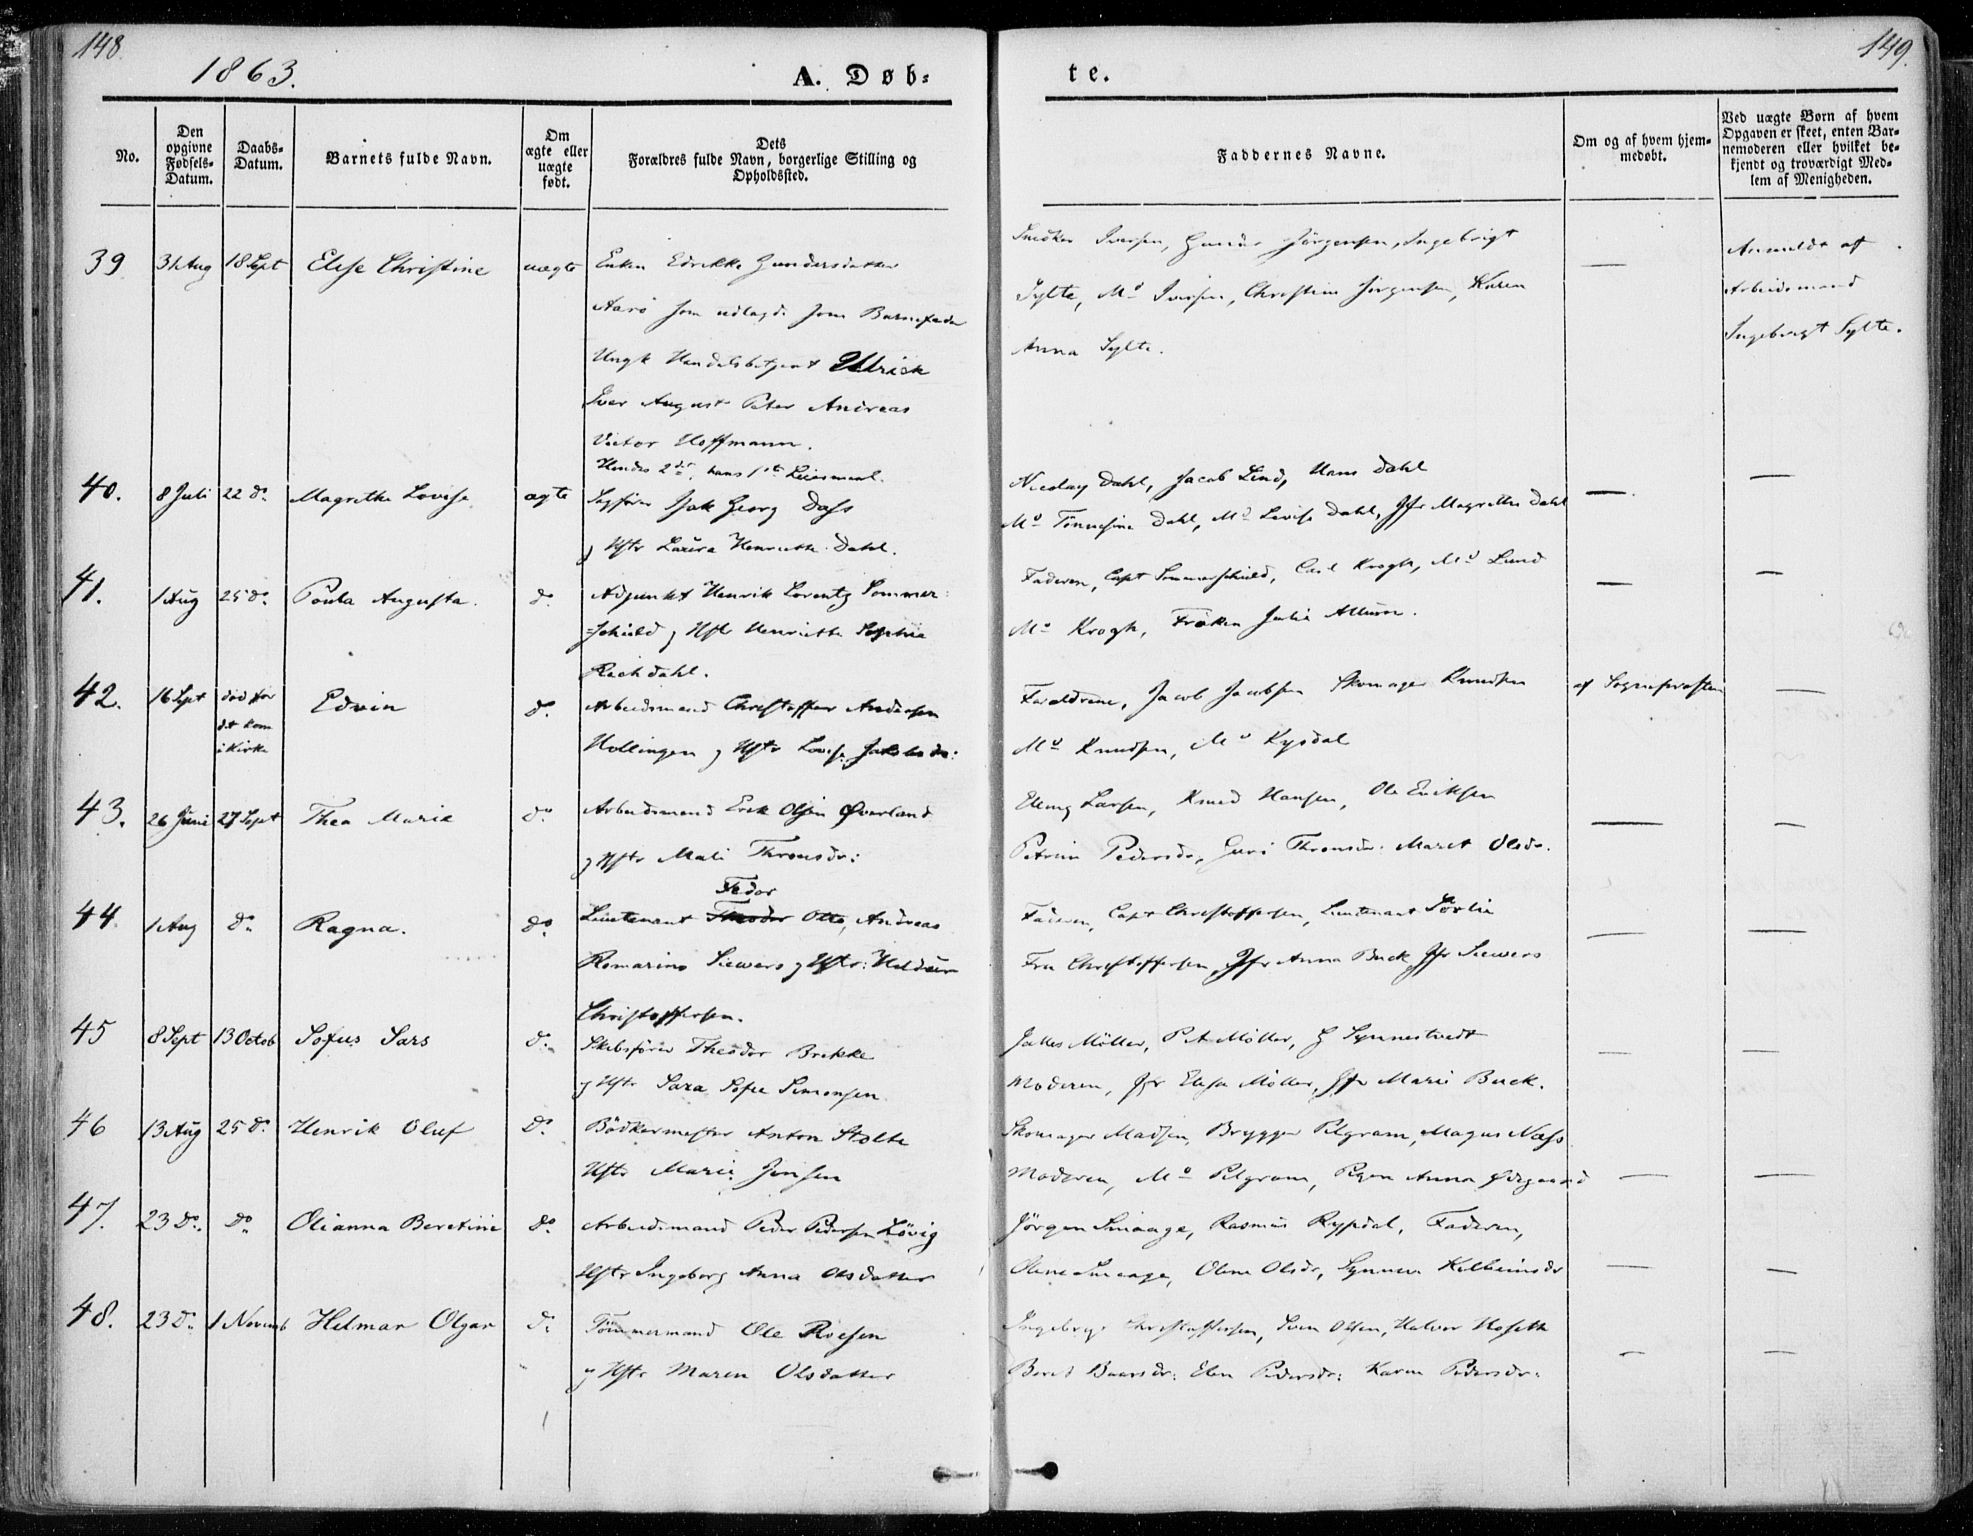 148.
1863.
A. Døb=
No.
Den opgivne Fødsels-Datum.
Daabs-Datum.
Barnets fulde Navn.
Om ægte eller uægte født.
Dets
Forældres fulde Navn, borgerlige Stilling og
Opholdssted.
39 31 Aug 18 Sept Elise Christine uægte Enken Edrikke Gundersdatter
Aarø som udlagde som Barnefader
Ungk Handelsbetjent Ulrich
Iver August Peter Andreas
Victor Hoffmann.
Hendes 2det, hans 1ste Leiermaal.
40. 8 Juli 22 do Magrethe Lovise ægte Sagfører Isak Georg Dass
og Hstr Laura Henriette Dahl.
41. 1 Aug 25 do Paula Augusta. do Adjunkt Henrik Lorentz Sommer=
=schield og Hstr Henriette Sophie
Rachdahl.
42. 16 Spt død før det kom i Kirke Edvin do. Arbeidsmand Christoffer Andersen
Hollingen og Hstr Lovise Jakobsdr:
43. 26 Juni 27 Sept Thea Marie do Arbeidsmand Erik Olsen Øverland
og Hstr Mali Thronsdr:
Fedor
44 1 Aug do Ragna. do. Lieutenant Theodor Otto, Andreas
Romarino Siewers og Hstr: Hildur
Christoffersen.
45 8 Sept 13 Octob Sofus Sars do. Skibsfører Theodor Brekke
og Hstr Sara Sofie Simonsen
46 13 Aug 25 do Henrik Oluf do Bödkermester Anton Stolte
Hstr Marie Jensen
47. 23 do. do Olianna Beretine do Arbeidsmand Peder Pedersen Lövig
Hstr Ingeborg Anna Olsdatter
48. 23 do 1 Novemb Hilmar Olgar do Tömmermand Ole Roesen
og Hstr Maren Olsdatter
149.
te.
Faddernes Navne.
Om og af hvem hjem-
medøbt.
Ved uægte Børn af hvem
Opgaven er skeet, enten Bar-
nemoderen eller hvilket be-
kjendt og troværdigt Med-
lem af Menigheden.
Snedker Iversen, Gunder Jörgensen, Ingebrigt
Sylte, Md Iversen, Christine Jörgensen, Karen
Anna Sylte.
— Anmeldt af
Arbeidsmand
Ingebrigt Sylte.
Nicolay Dahl, Jacob Lind, Hans Dahl
Md Tönnesine Dahl, Md Lovise Dahl, Jfr Magrethe Dahl
— —
Faderen, Capt Sommerschield, Carl Krogh, Md Lund
Md Krogh, Fröken Julie Allum.
— —
Forældrene, Jacob Jacobsen Skomager Knudsen af Sognepresten —
Md Knudsen, Md Rysdal
Elling Larsen, Knud Hansen, Ole Eriksen
Petrine Pedersdr, Guri Thronsdr. Maret Olsdr.
— —
Faderen, Capt Christoffersen, Lieutenant Sörlie
Fru Christoffersen, Jfr Anna Buck Jfr Siewers
— —
Jakes Möller, P. A Möller, G Synnestvedt
Moderen, Jfr Elisa Möller, Jfr Marie Buck.
— —
Skomager Madsen, Brygger Pilgram, Magnus Næss
Moderen, Md Pilgram, Pigen Anna Ödegaard
— —
Jörgen Smaage, Rasmus Rypdal, Faderen,
Olene Smaage, Olene Olsdr, Synneve Kolbeinsdr
— —
Ingebrigt Christoffersen, Sven Olsen, Halvor Hoseth
Beret Baarsdr: Elen Pedersdr: Karen Pedersdr:
— —